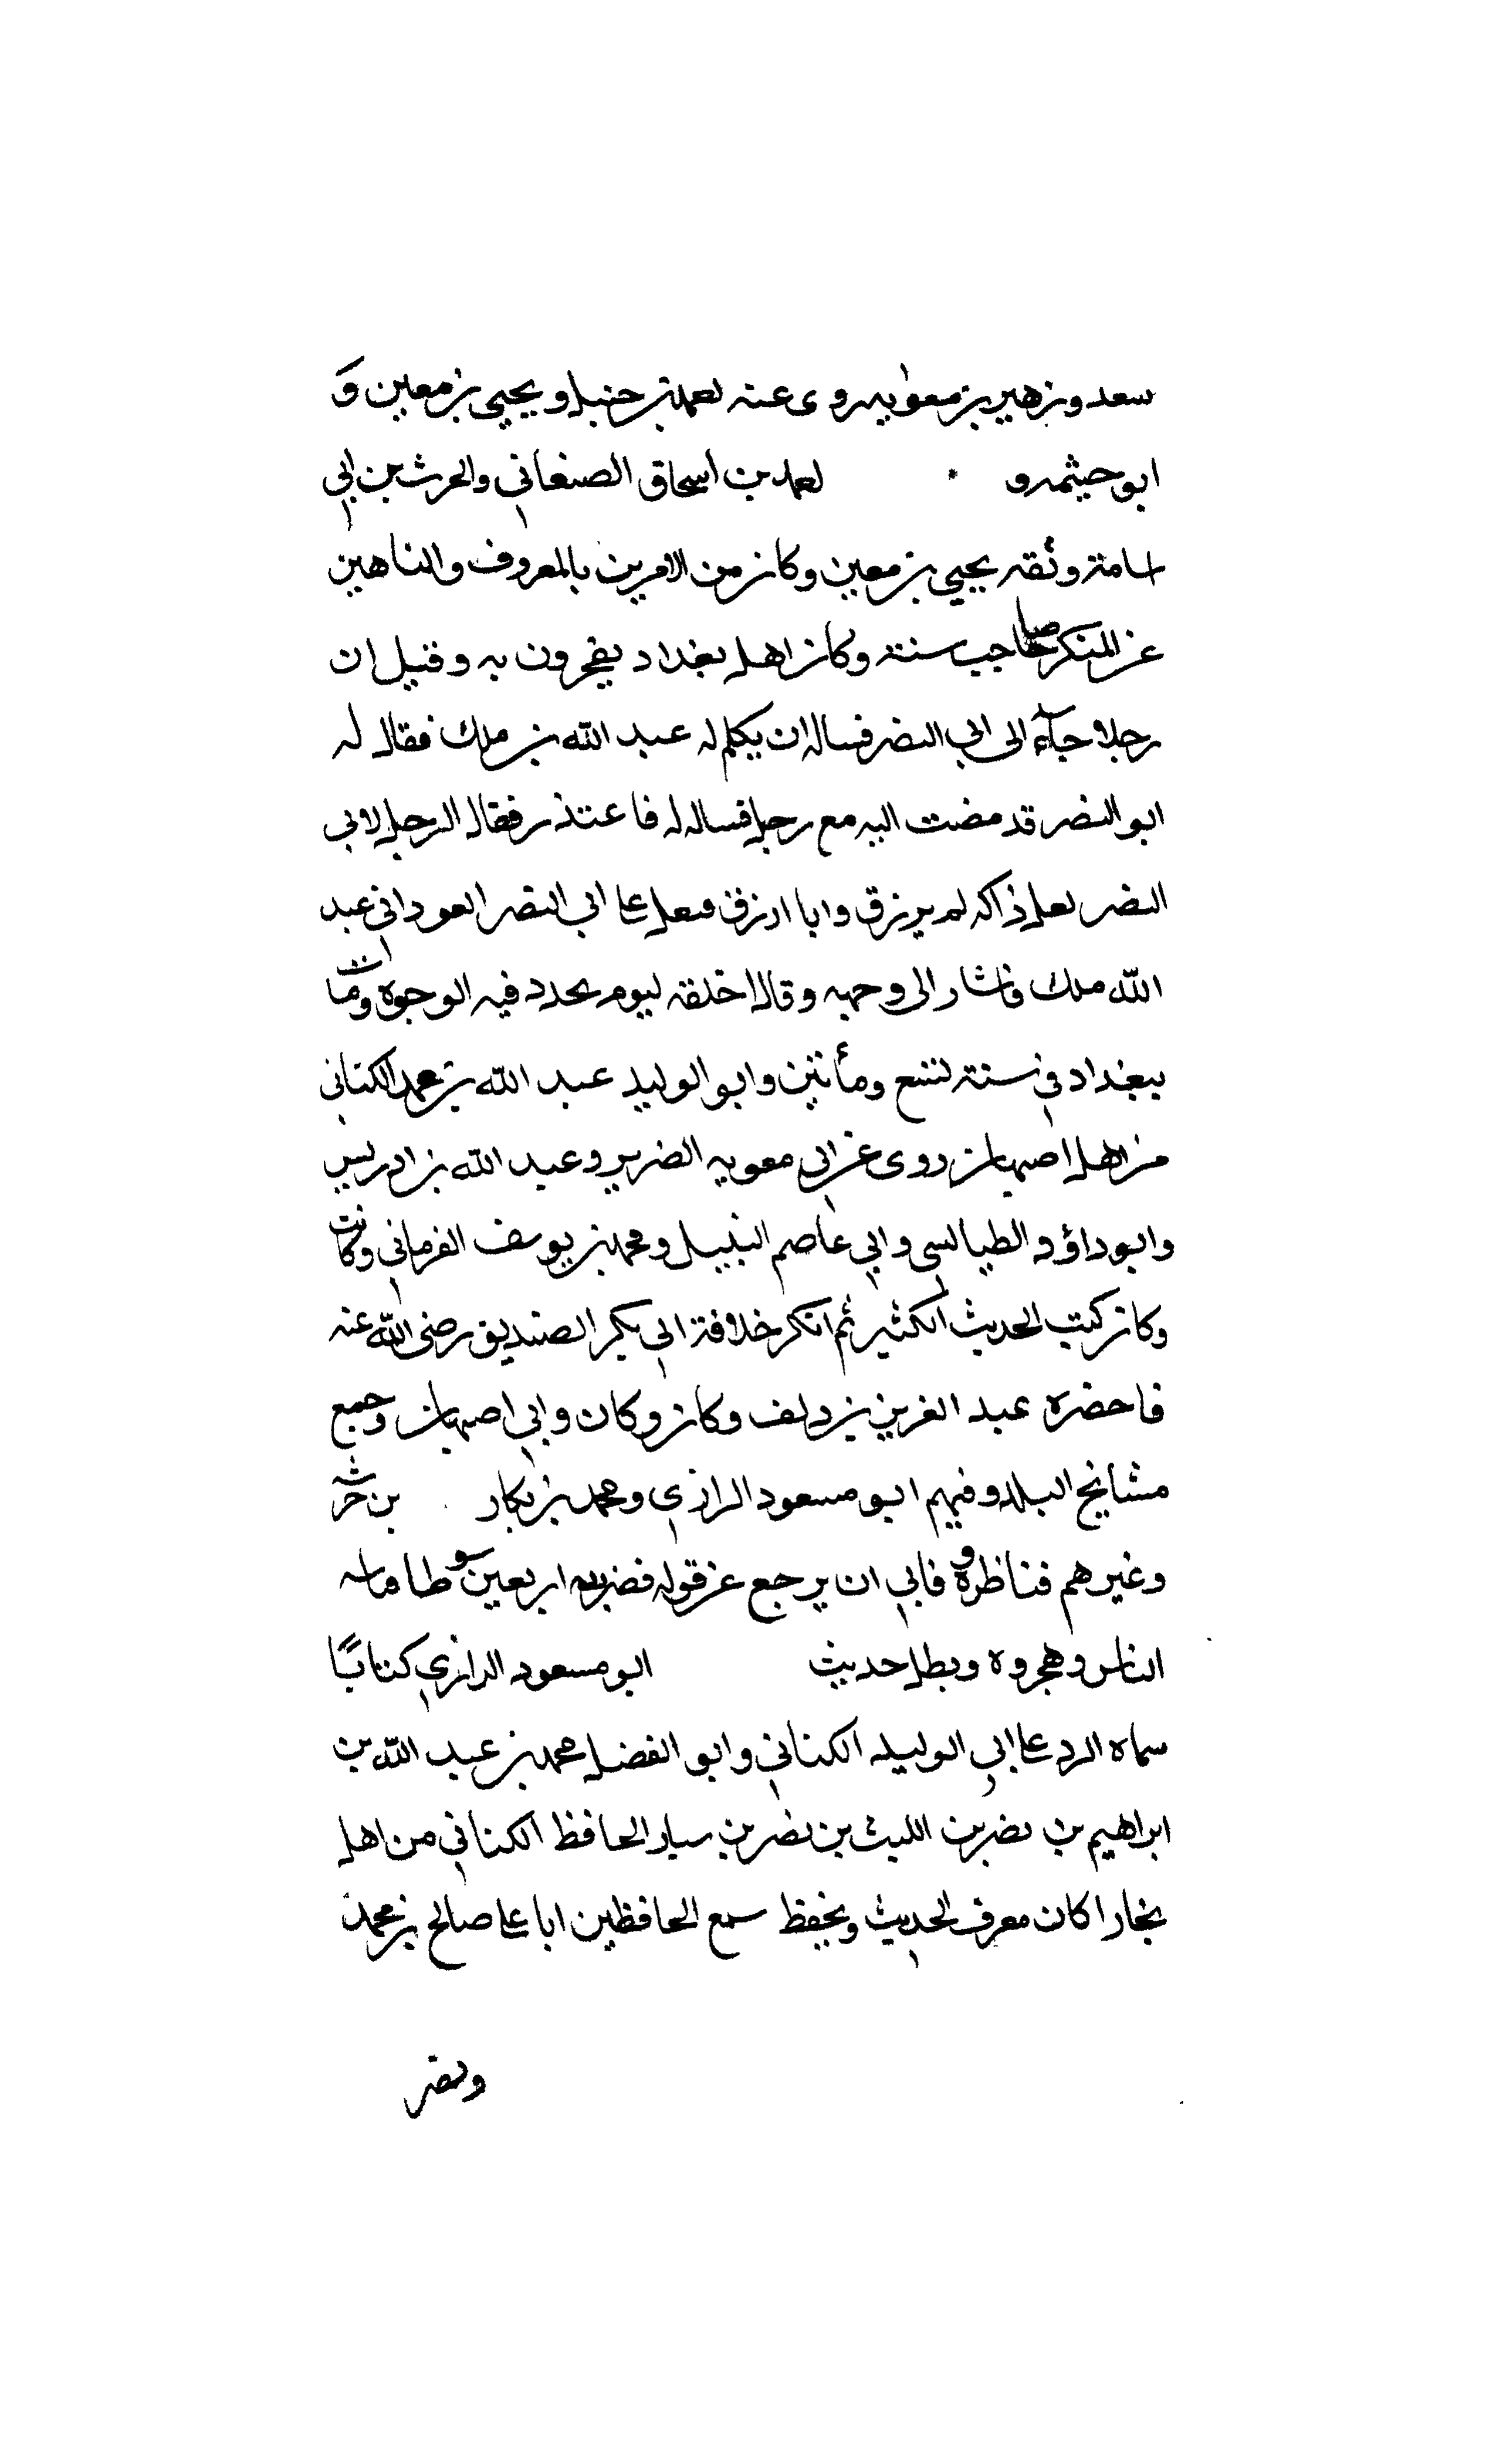 سعد وزهير بن معويه روى عنه احمد بن حنبل ويحيى بن معين و
ابو حيثمه و احمد بن اسحاق الصنعاني والحرث بن ابي
اسامة وثقه يحيى بن معين وكان من الامرين بالمعروف والناهين
عن المنكر صاحب سنة وكان اهل بغداد يفخرون به وقيل ان
رجلا جاء الى ابي النضر فساله ان يكلم له عبد الله بن ملك فقال له
ابو النضر قد مضت اليه مع رجل فساله له فاعتذر فقال الرجل لابي
النضر لعل ذاك لم يرزق وانا ارزق فعل على ابي النضر العود اني عبد
الله ملك فاشار الى وجهه وقال اخلقه ليوم يحدد فيه الوجوه ومات
ببغداد في سنة تسع ومأتين وابو الوليد عبد الله بن محمد الكناني
من اهل اصبهان روى عن ابي معويه الضرير وعبد الله بن ادريس
وابو داؤد الطيالسي وابي عاصم النبيل ومحمد بن يوسف الفرماني وكانت
وكان كتب الحديث الكثير ثم انكر خلافة ابي بكر الصديق رضى الله عنه
فاحضره عبد العزيز بن دلف وكان وكان وابي اصبهان وجمع
مشايخ البلد وفيهم ابو مسعود الرازي ومحمد بن بكار بن
وغيرهم فناظروه فابي ان يرجع عن قوله فضربه اربعين سوطا
الناس وهجروه وبطل حديث ابو مسعود الرازي كتابًا
سماه الرد على ابي الوليد الكناني وابو الفضل محمد بن عبد الله بن
ابراهيم بن نصر بن الليث بن نصر بن سيار الحافظ الكناني من اهل
بخارا كان معرف الحديث ويحفظ سمع الحافظين ابا على صالح بن محمد
ونصر